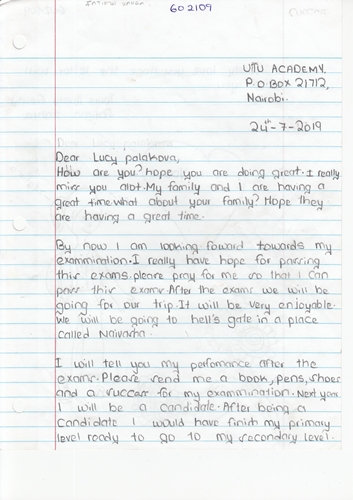 602109
UTU ACADEMY.
P.O BOX 21712,
Nairobi.
24th-7-2019
Dear Lucy palahova,
How are you? hope you are doing great. I really
miss you alot. My family and I are having a
great time. what about your family? Hope they
are having a great time.
By now I am looking foward towards my
exammination. I really have hope for passing
this exams. please pray for me so that I can
pass this exams. After the exams we will be
going for our trip. It will be very enjoyable.
We will be going to hell's gate in a place
called Naivasha.
I will tell you my perfomance after the
exams. Please send me a book, pens, shoes
and a success for my exammination. Next year
I will be a candidate. After being a
candidate I would have finish my primary
level ready to go to my secondary level.